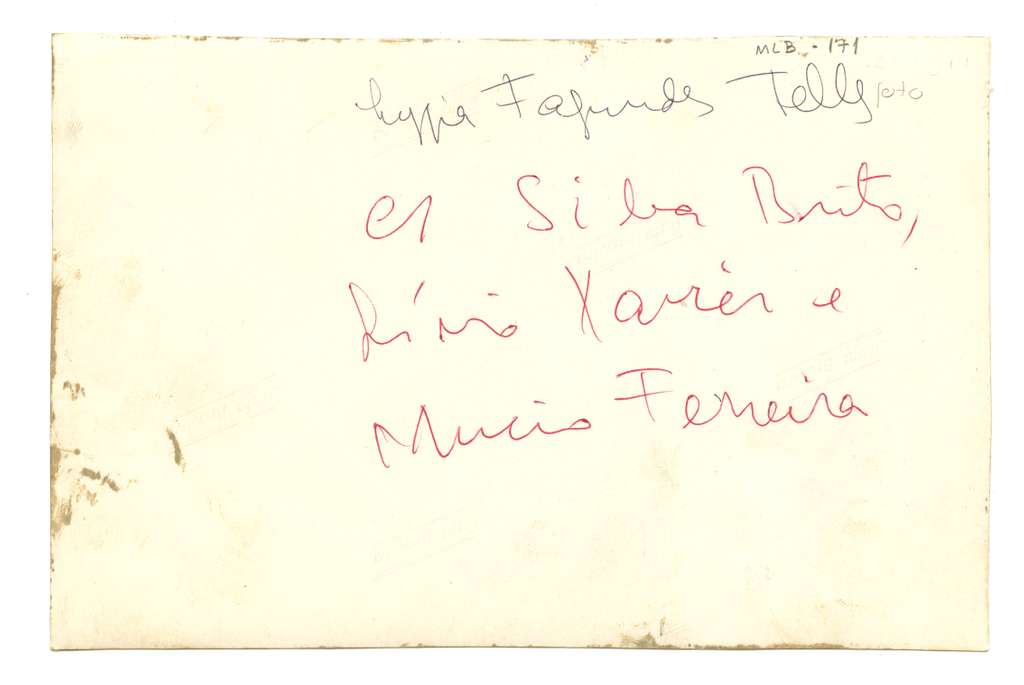 MLB - 171
Lygia Fagundes Telles foto
c/ Silva Brito,
Lívio Xavier e
Mucio Ferreira